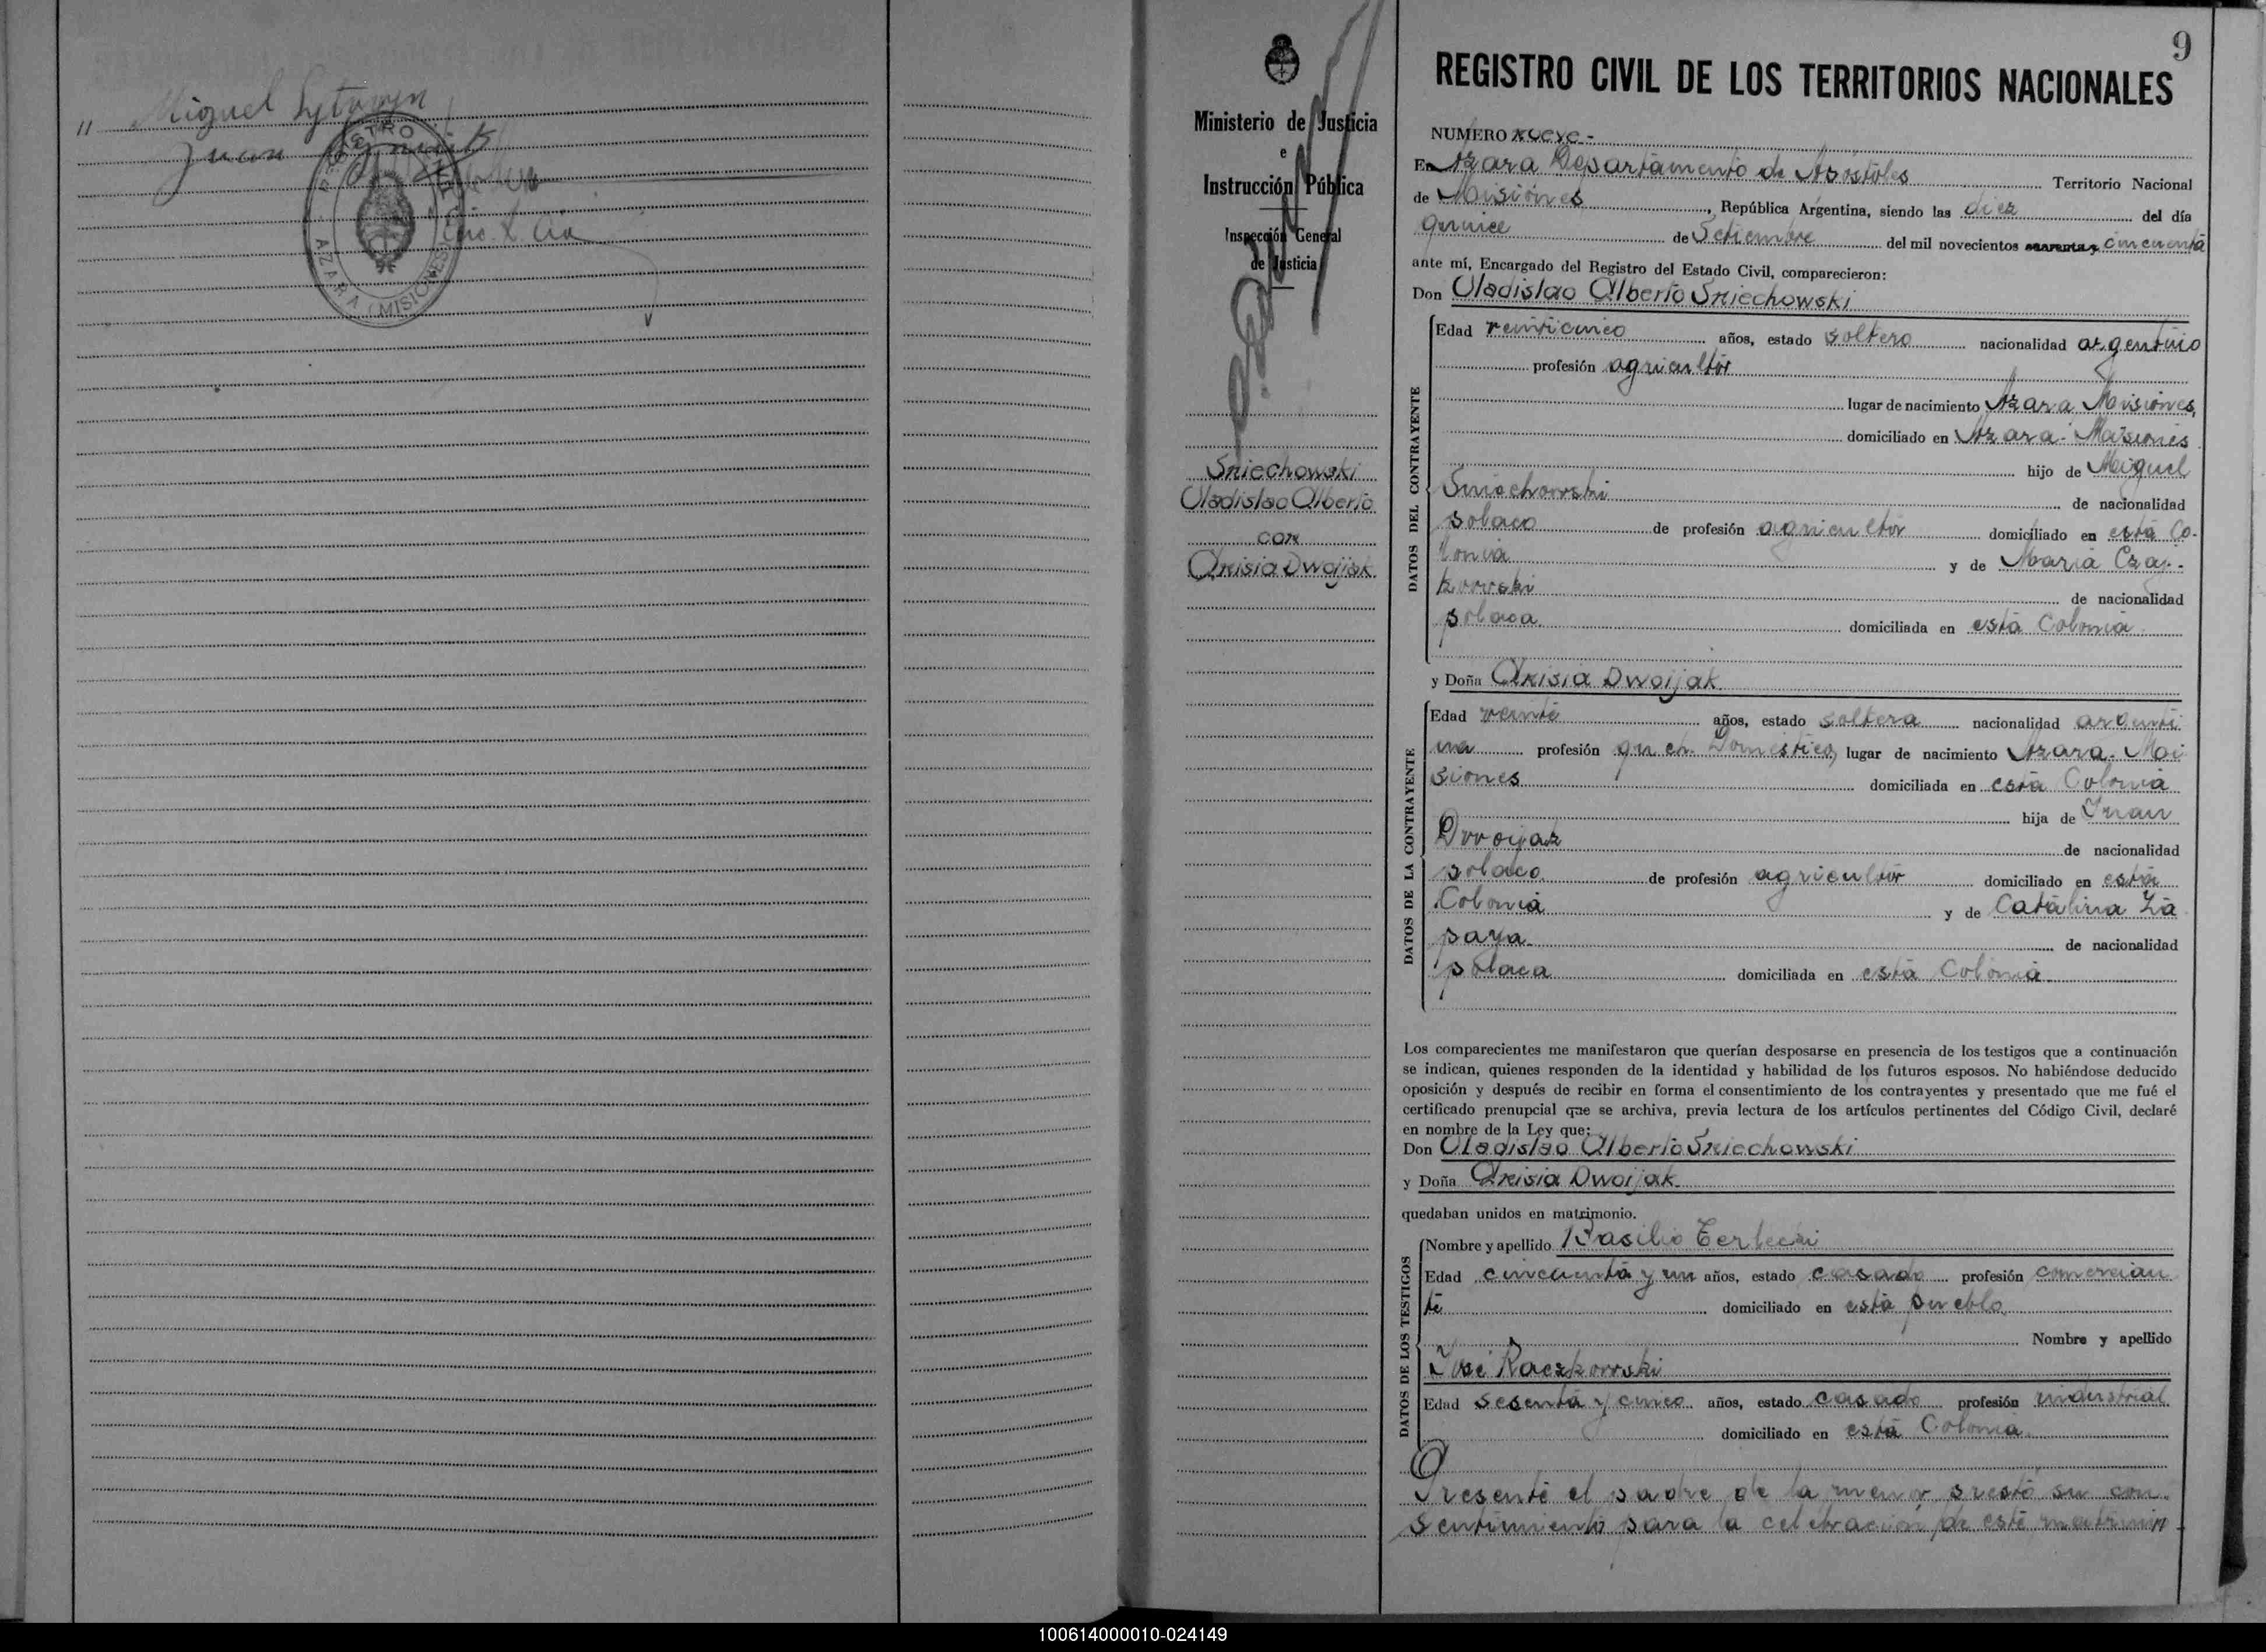 " Miguel Lytwyn
Juan
REGISTRO
AZARA (MISIONES)
9
Ministerio de Justicia
e
Instrucción Pública
Inspección General
de Justicia
Sniechowski
Uladislao Alberto
con
Anisia Dwojak
REGISTRO CIVIL DE LOS TERRITORIOS NACIONALES
NUMERO nueve-
En Azara Departamento de Apóstoles Territorio Nacional
de Misiones, República Argentina, siendo las diez del día
quince de Setiembre del mil novecientos cuarenta y cincuenta
ante mí, Encargado del Registro del Estado Civil, comparecieron:
Don Uladislao Alberto Sniechowski
DATOS DEL CONTRAYENTE
Edad veinticinco años, estado soltero nacionalidad argentino
profesión agricultor
lugar de nacimiento Azara Misiones,
domiciliado en Azara. Misiones
hijo de Miguel
Sniechowski de nacionalidad
polaco de profesión agricultor domiciliado en esta Co-
lonia y de Maria Czaj-
kowski de nacionalidad
polaca domiciliada en esta Colonia
y Doña Anisia Dwojak
DATOS DE LA CONTRAYENTE
Edad veinte años, estado soltera nacionalidad argenti
na profesión queh. Domésticos, lugar de nacimiento Azara. Mi
siones domiciliada en esta Colonia
hija de Juan
Dwojak de nacionalidad
polaco de profesión agricultor domiciliado en esta
Colonia y de Catalina Za
paya de nacionalidad
polaca domiciliada en esta Colonia
Los comparecientes me manifestaron que querían desposarse en presencia de los testigos que a continuación
se indican, quienes responden de la identidad y habilidad de los futuros esposos. No habiéndose deducido
oposición y después de recibir en forma el consentimiento de los contrayentes y presentado que me fué el
certificado prenupcial que se archiva, previa lectura de los artículos pertinentes del Código Civil, declaré
en nombre de la Ley que:
Don Uladislao Alberto Sniechowski
y Doña Anisia Dwojak
quedaban unidos en matrimonio.
DATOS DE LOS TESTIGOS
Nombre y apellido Basilio Terlecki
Edad cincuenta y un años, estado casado profesión comercian
te domiciliado en esta pueblo
Nombre y apellido
José Raczkowski
Edad sesenta y cinco años, estado casado profesión industrial
domiciliado en esta Colonia
Presente el padre de la menor prestó su con
sentimiento para la celebración de este matrimo
100614000010-024149